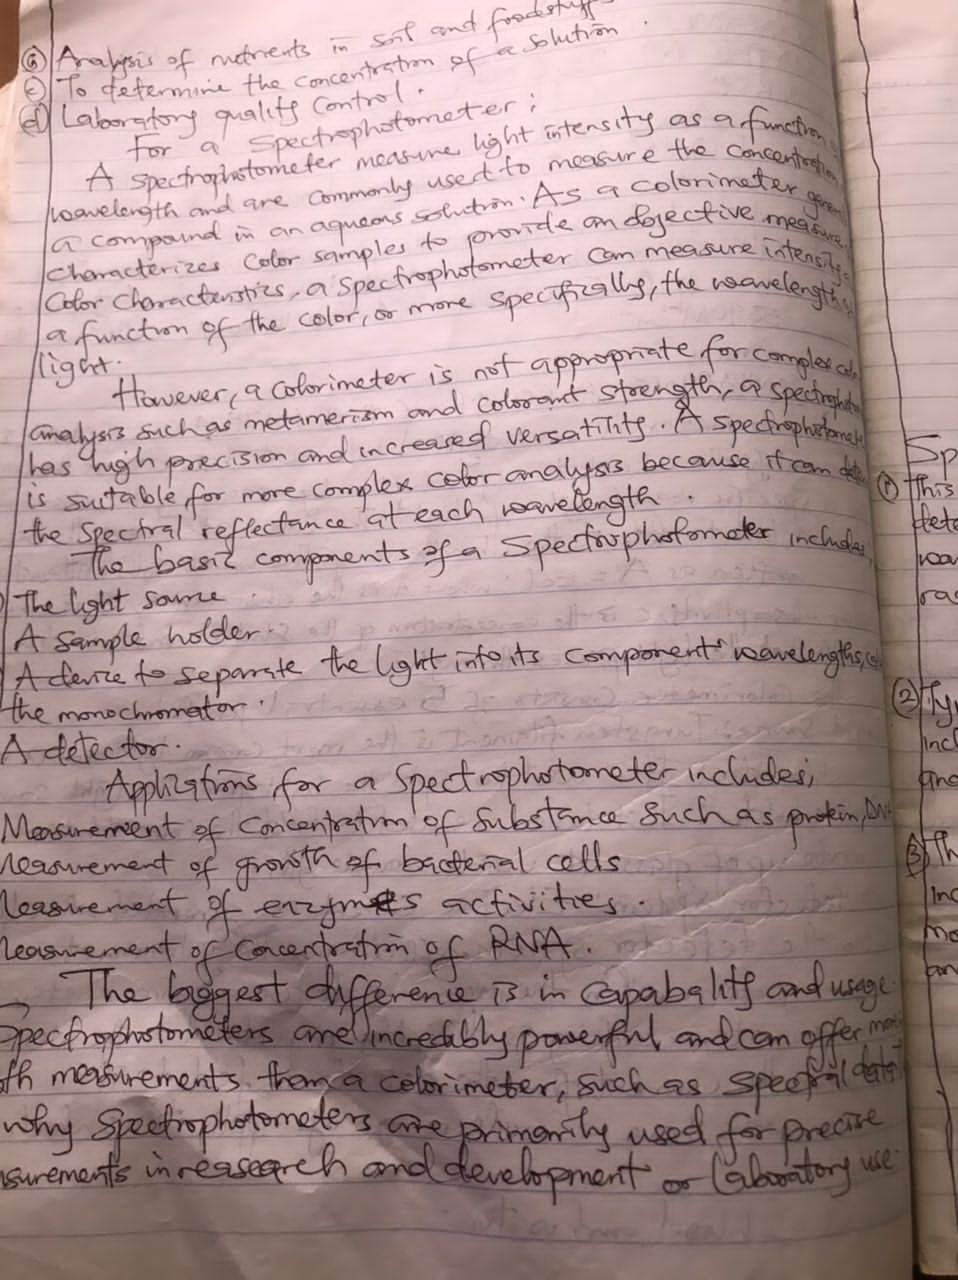 Analysis of nutrients in soil and foodstuff
c) To determine the concentration of a solution.
d) Laboratory quality control.
For a Spectrophotometer;
A spectrophotometer measure light intensity as a function
wavelength and are commonly used to measure the concentration
a compound in an aqueous solution. As a colorimeter
characterizes color samples to provide an objective measure
Color characteristics, a Spectrophotometer can measure intensity
a function of the color, or more specifically, the wavelength
light.
However, a colorimeter is not appropriate for complex
analysis such as metamerism and colorant strength, a
has high precision and increased versatility. A
is suitable for more complex color analysis because it can
the spectral reflectance at each wavelength.
The basic components of a Spectrophotometer includes
The light source.
A sample holder.
A device to separate the light into its component wavelengths,
the monochromator.
A detector.
Applications for a Spectrophotometer includes;
Measurement of concentration of substance such as protein,
Measurement of growth of bacterial cells
Measurement of enzymes activities.
Measurement of concentration of RNA.
The biggest difference is in capabality and usage
Spectrophotometers are incredibly powerful and can offer
measurements than a colorimeter, such as spectral data
why Spectrophotometers are primarily used for precise
surements in reasearch and development or laboratory use.
Sp
① This
dete
wav
ra
② Ty
incl
and
③ Th
inc
mo